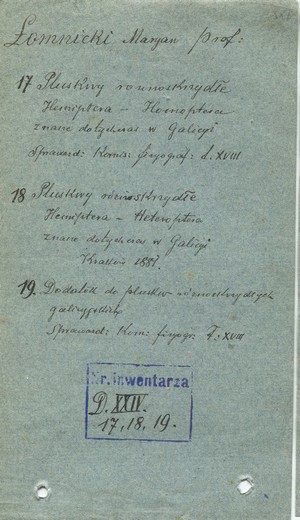 Łomnicki Maryan Prof:
17 Pluskwy równoskrzydłe
Hemiptera – Homoptera
znane dotychczas w Galicyi
Sprawozd: Komis: fizyograf: t. XVIII
18 Pluskwy różnoskrzydłe
Hemiptera – Heteroptera
znane dotychczas w Galicyi
Kraków 1881.
19. Dodatek do pluskw różnoskrzydłych
galicyjskich
Sprawozd: Kom: fizyogr: T: XVIII
Nr. inwentarza
D. XXIV.
17, 18, 19.